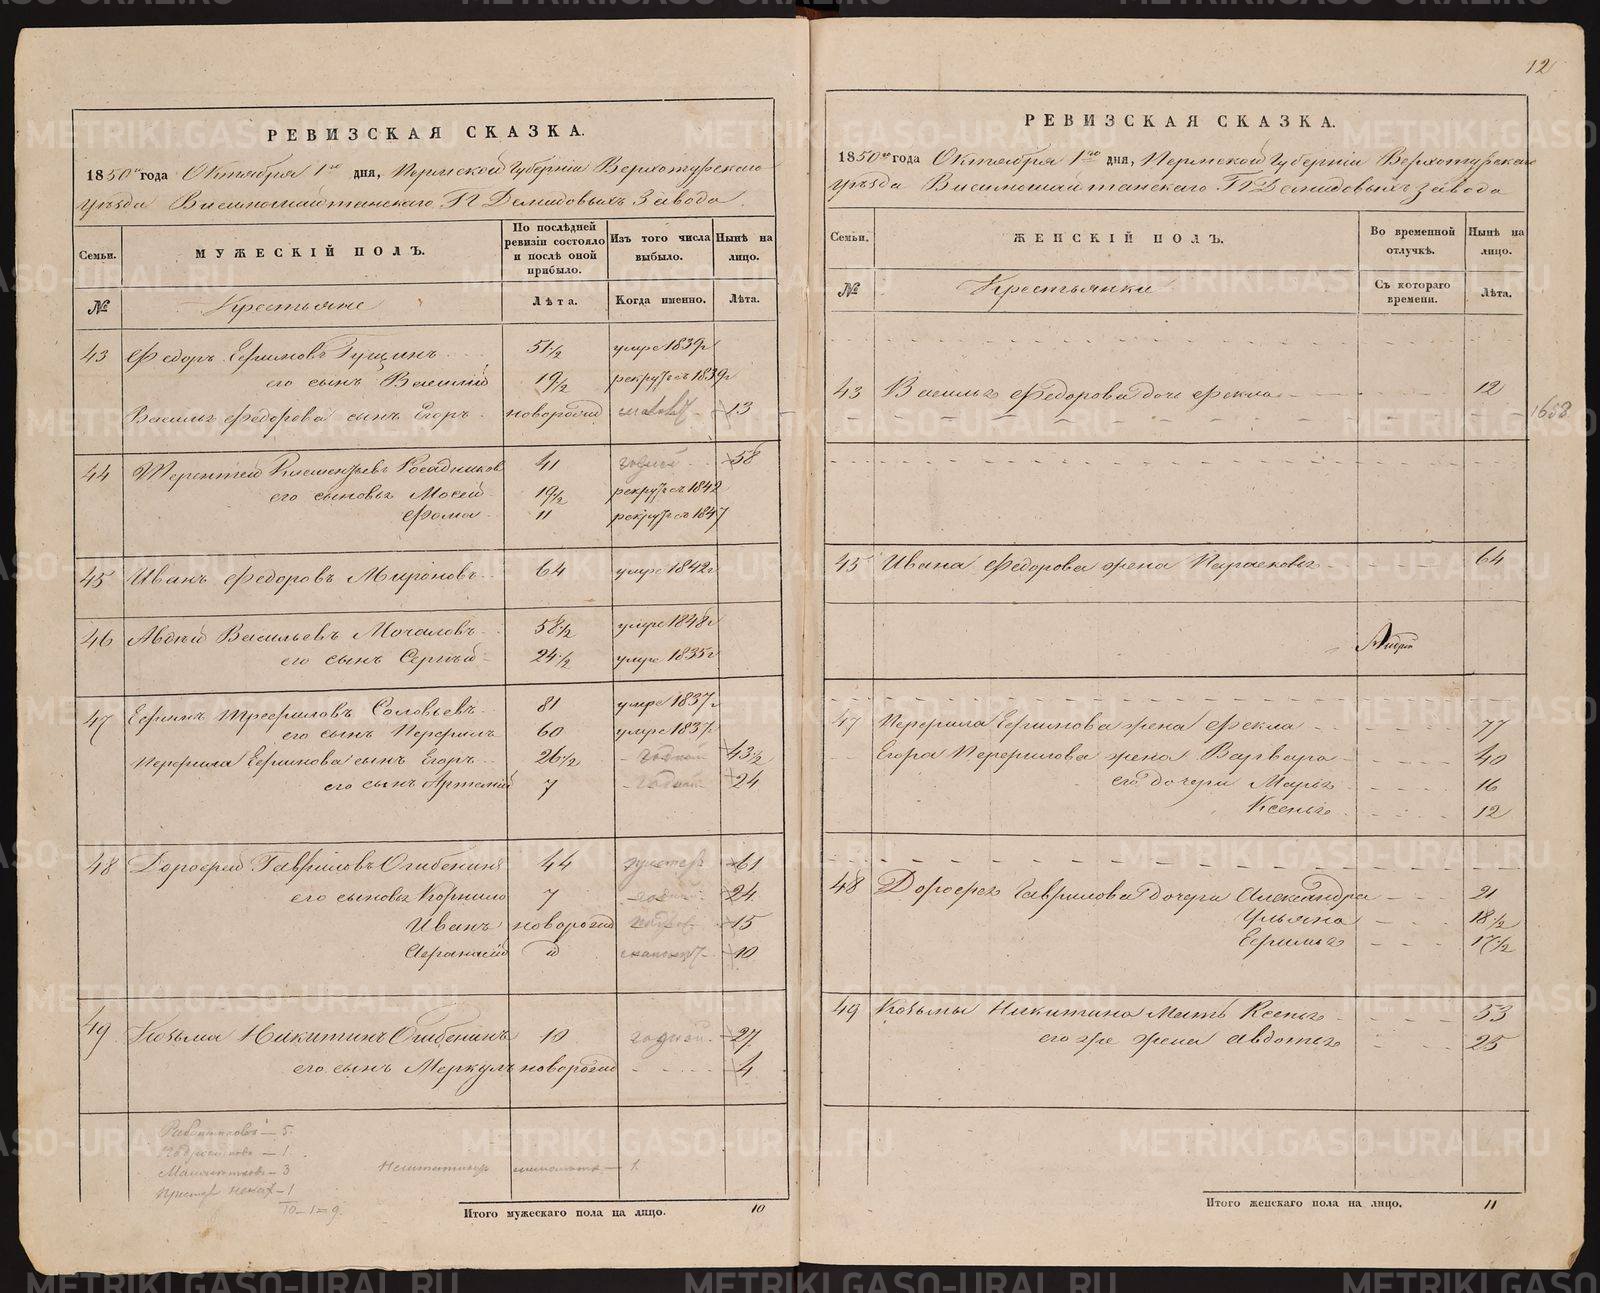 12
РЕВИЗСКАЯ СКАЗКА.
1850го года Октября 1го дня, Пермской Губерніи Верхотурскаго
уѣзда Висимошайтанскаго П Демидовыхъ Завода.
Семьи.
МУЖЕСКІЙ ПОЛЪ.
По послѣдней ревизіи состояло и послѣ оной прибыло.
Изъ того числа выбыло.
Нынѣ на лицо.
№ Крестьяне Лѣта. Когда именно. Лѣта.
43 Федоръ Ефимовъ Гущинъ 51 1/2 умре 1839г
его сынъ Василій 19 1/2 рекрутъ съ 1839г
Василья Федорова сынъ Егоръ новорожд 13
44 Терентій Климентьевъ Посадников 41 годной 58
его сыновья Мосей 19 1/2 рекрутъ съ 1842
Фома 11 рекрутъ съ 1847
45 Иванъ Федоровъ Мироновъ 64 умре 1842г
46 Авдѣй Васильевъ Мочаловъ 58 1/2 умре 1848г
его сынъ Сергѣй 24 1/2 умре 1835г
47 Ефимъ Трефиловъ Соловьевъ 81 умре 1837г
его сынъ Перфилъ 60 умре 1837г
Перфила Ефимова сынъ Егоръ 26 1/2 годной 43 1/2
его сынъ Артемій 7 годной 24
48 Дорофей Гавриловъ Огибенинъ 44 61
его сыновья Корнило 7 годной 24
Иванъ новорожд 15
Афанасій " 10
49 Козьма Никитинъ Огибенинъ 10 годной 27
его сынъ Меркулъ новорожд 4
Работниковъ — 5.
— 1.
— 3
— 1
10 – 1 = 9.
— 1.
Итого мужескаго пола на лицо. 10
РЕВИЗСКАЯ СКАЗКА.
1850го года Октября 1го дня, Пермской Губерніи Верхотурскаго
уѣзда Висимошайтанскаго П Демидовыхъ завода
Семьи.
ЖЕНСКІЙ ПОЛЪ.
Во временной отлучкѣ.
Нынѣ на лицо.
№ Крестьянки Съ котораго времени. Лѣта.
43 Василья Федорова дочь Фекла 12
1653
45 Ивана Федорова жена Парасковья 64
47 Перфила Ефимова жена Фекла 77
Егора Перфилова жена Варвара 40
его дочери Марья 16
Ксенья 12
48 Дорофея Гаврилова дочери Александра 21
Ульяна 18 1/2
Ефимья 17 1/2
49 Козьмы Никитина Мать Ксенья 53
его же жена Авдотья 25
Итого женскаго пола на лицо. 11
METRIKI.GASO-URAL.RU